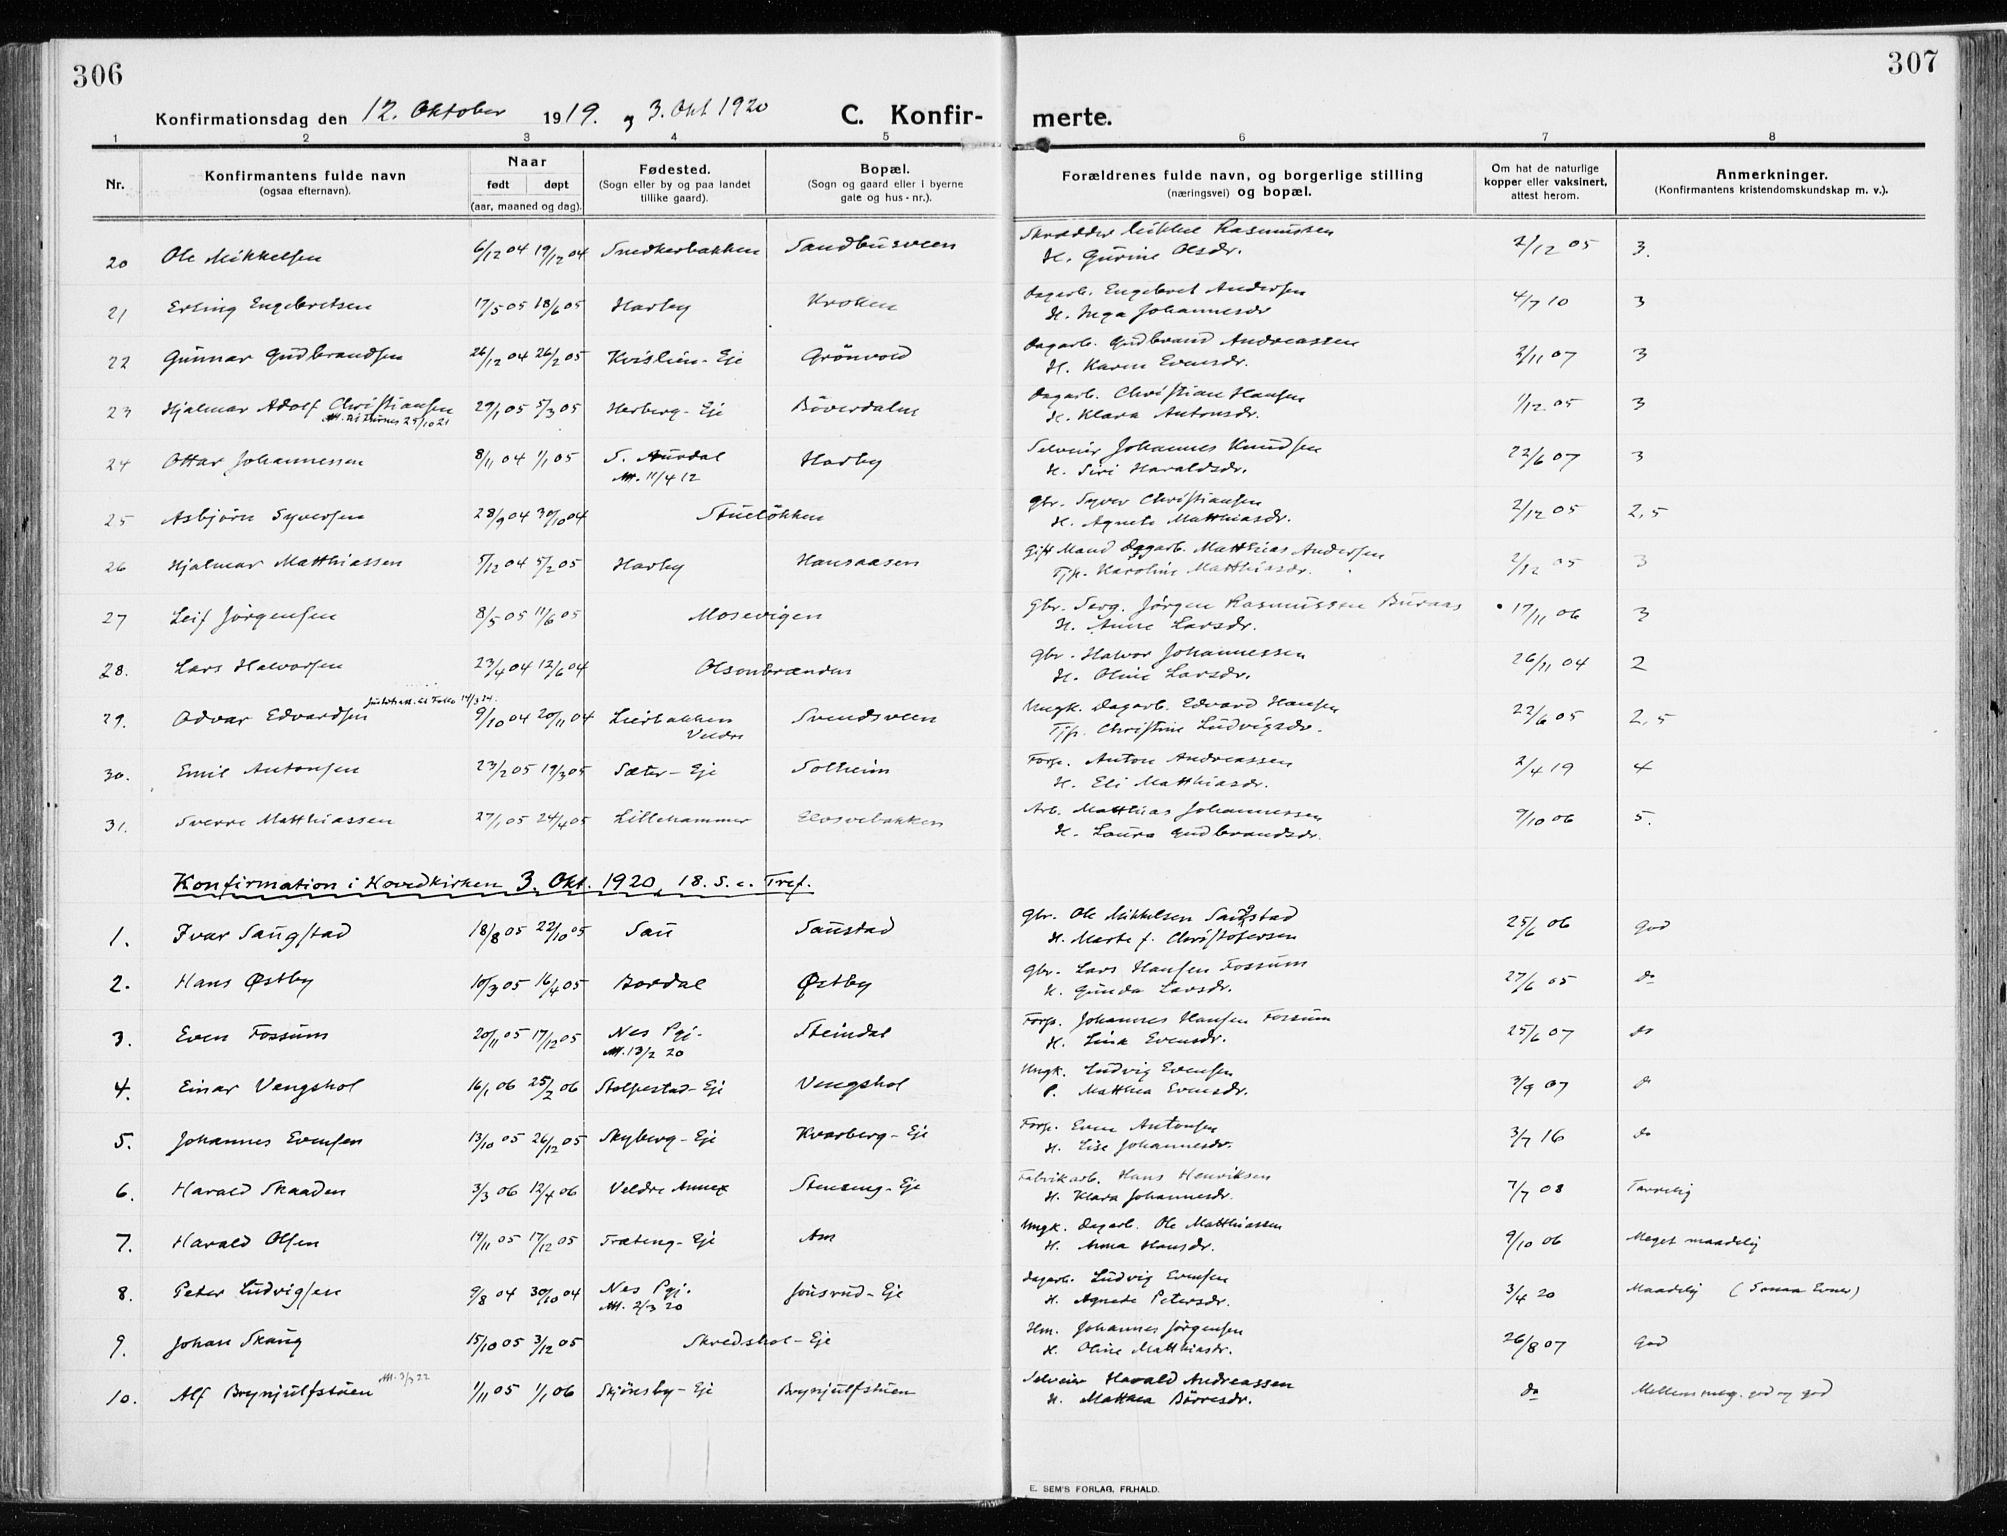 306
307
Konfirmationsdag den 12. Oktober 1919. og 3. Okt 1920
C. Konfirmerte.
1 2 3 4 5 6 7 8
Nr.
Konfirmantens fulde navn (ogsaa efternavn).
Naar født døpt (aar, maaned og dag).
Fødested. (Sogn eller by og paa landet tillike gaard).
Bopæl. (Sogn og gaard eller i byerne gate og hus-nr.).
Forældrenes fulde navn, og borgerlige stilling (næringsvei) og bopæl.
Om hat de naturlige kopper eller vaksinert, attest herom.
Anmerkninger. (Konfirmantens kristendomskundskap m. v.).
20 Ole Mikkelsen 6/12 04 19/12 04 Snedkerbakken Sandbusveen Skrædder Mikkel Rasmussen H. Gurine Olsdr. 2/12 05 3.
21 Erling Engebretsen 17/5 05 18/6 05 Harby Kroken Dagarb. Engebret Andersen H. Inga Johannesdr 4/7 10 3
22 Gunnar Gudbrandsen 26/12 04 26/2 05 Kvislien-Eje Grönvold Dagarb. Gudbrand Andreassen H. Karen Evensdr. 2/11 07 3
23 Hjalmar Adolf Christiansen 29/1 05 5/3 05 Herberg-Eje Böverdalen Dagarb. Christian Hansen H. Klara Antonsdr. 1/12 05 3
24 Ottar Johannessen 8/11 04 1/1 05 S. Aurdal Att. 11/4 12 Harby Selveier Johannes Knudsen H. Siri Haraldsdr. 22/6 07 3
25 Asbjörn Syversen 28/9 04 30/10 04 Stuelökken Gbr. Syver Christiansen H. Agnete Matthiasdr. 2/12 05 2,5
26 Hjalmar Matthiassen 5/12 04 5/2 05 Harby Hansaasen Gift Mand Dagarb. Matthias Andersen Tjp. Karoline Matthiasdr. 2/12 05 3
27 Leif Jörgensen 8/5 05 11/6 05 Mosevigen Gbr. Serg. Jörgen Rasmussen Buraas H. Anne Larsdr. 17/11 06 3
28. Lars Halvorsen 23/4 04 12/6 04 Olsenbrænden Gbr. Halvor Johannessen H. Oline Larsdr. 26/11 04 2
29. Odvar Edvardsen 9/10 04 20/11 04 Lierbakken Veldre Svendsveen Ungk. Dagarb. Edvard Hansen Tjp. Christine Ludvigsdr. 22/6 05 2,5
30. Emil Antonsen 23/2 05 19/3 05 Sæter-Eje Solheim Forp. Anton Andreassen H. Eli Matthiasdr. 2/4 19 4
31. Sverre Matthiassen 27/1 05 24/4 05 Lillehammer Elvsvebakken Arb. Matthias Johannessen H. Laura Gudbrandsdr. 9/10 06 5.
Konfirmation i Hovedkirken 3. Okt. 1920, 18. S. e. Tref.
1. Ivar Saugstad 18/8 05 22/10 05 Sau Saustad Gbr. Ole Mikkelsen Saugstad H. Marte f. Christofersen 25/6 06 God
2. Hans Østby 10/3 05 16/4 05 Bordal Østby Gbr. Lars Hansen Fossum H. Gunda Larsdr. 27/6 05 do
3. Even Fossum 20/11 05 17/12 05 Nes Pgj. Att. 13/2 20 Steindal Forp. Johannes Hansen Fossum H. Lina Evensdr. 25/6 07 do
4. Einar Vengshol 16/1 06 25/2 06 Stolpestad-Eje Vengshol Ungk. Ludvig Evensen P. Matthea Evensdr. 3/9 07 do
5. Johannes Evensen 13/10 05 26/12 05 Skyberg-Eje Kvarberg-Eje Forp. Even Antonsen H. Lise Johannesdr. 3/7 16 do
6. Harald Skaaden 3/3 06 12/4 06 Veldre Annex Stenseng-Eje Fabrikarb. Hans Henriksen H. Klara Johannesdr. 7/7 08 Tarvelig
7. Harald Olsen 19/11 05 17/12 05 Træteng-Eje Am Ungk. Dagarb. Ole Matthiassen H. Anna Hansdr. 9/10 06 Meget maadelig
8. Peter Ludvigsen 9/8 04 30/10 04 Nes Pgj. Att. 2/3 20 Jönsrud-Eje Dagarb. Ludvig Evensen H. Agnete Petersdr. 3/4 20 Maadelig (Smaa Evner)
9. Johan Skaug 15/10 05 3/12 05 Skredshol-Eje Hm. Johannes Jörgensen H. Oline Matthiasdr. 26/8 07 God
10. Alf Brynjulfstuen Att. 3/3 22 1/11 05 1/1 06 Skjönsby-Eje Brynjulfstuen Selveier Harald Andreassen H. Mathea Börresdr. do Mellem meg. god og god
E. SEM'S FORLAG, FR.HALD.